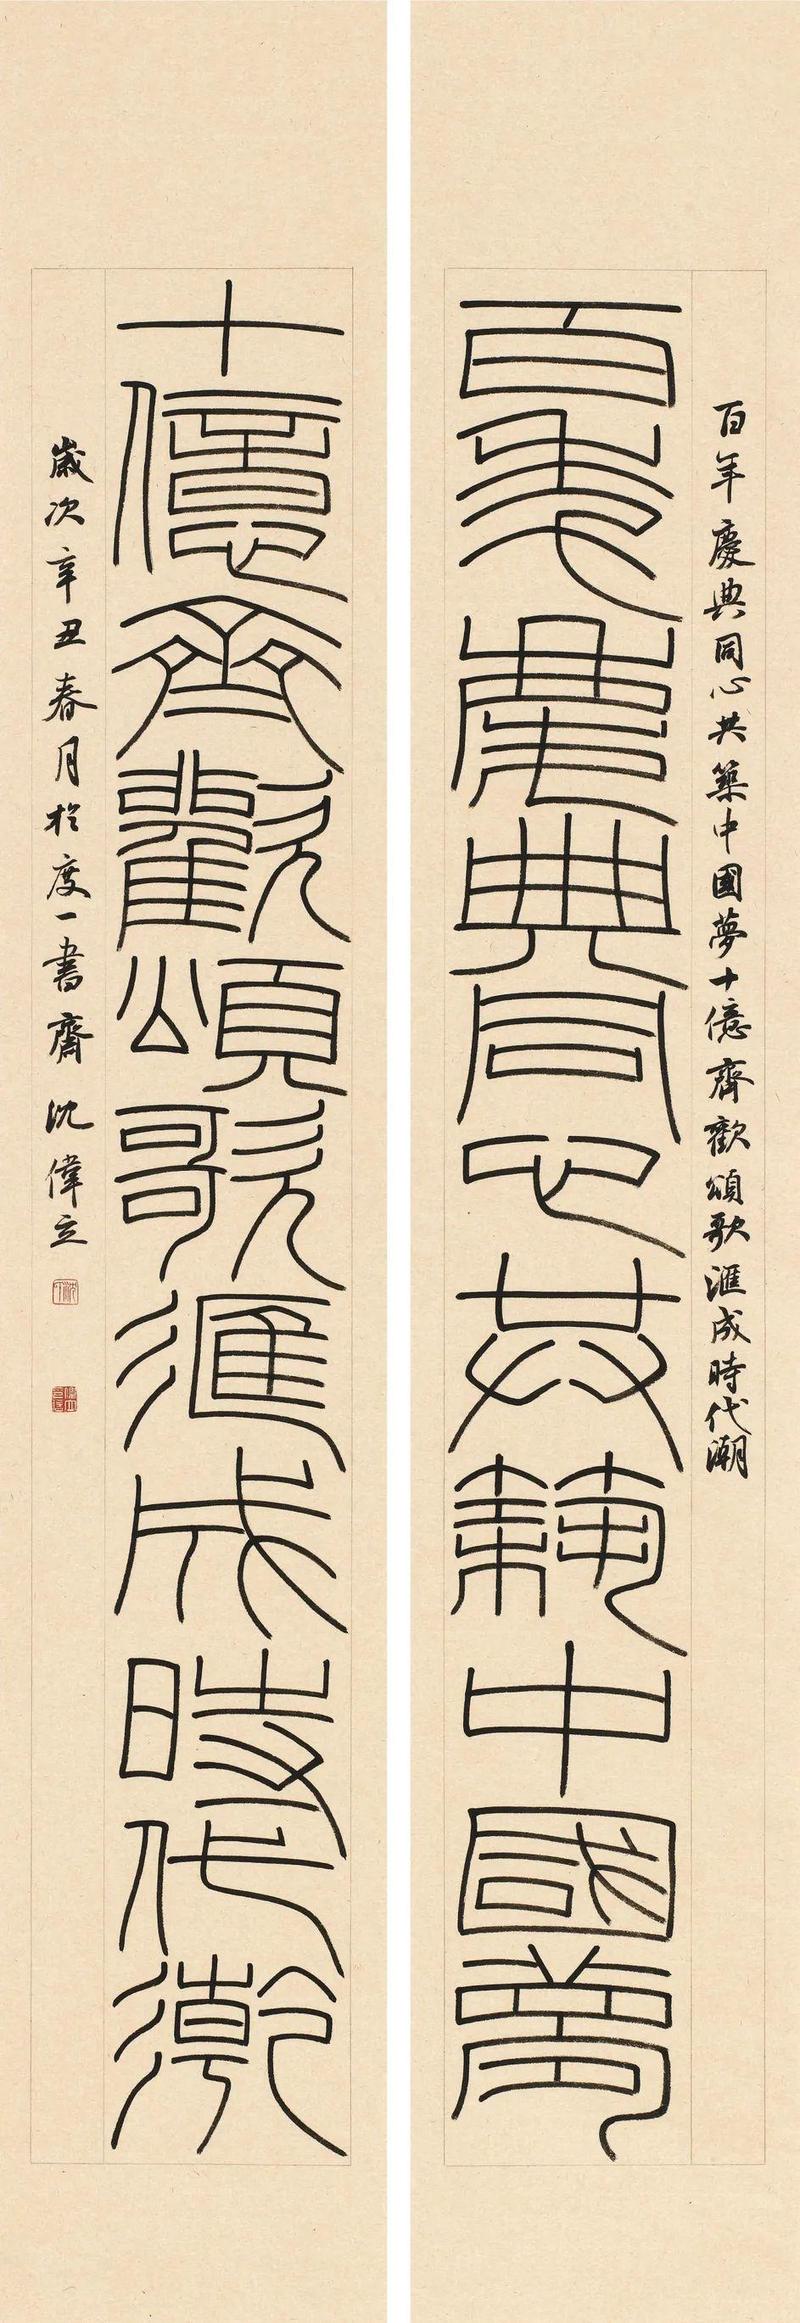 百年慶典同心共築中國夢十億齊歡頌歌滙成時代潮
百年慶典同心共築中國夢
十億齊歡頌歌滙成時代潮
歲次辛丑春月於度一書齋 沈偉立